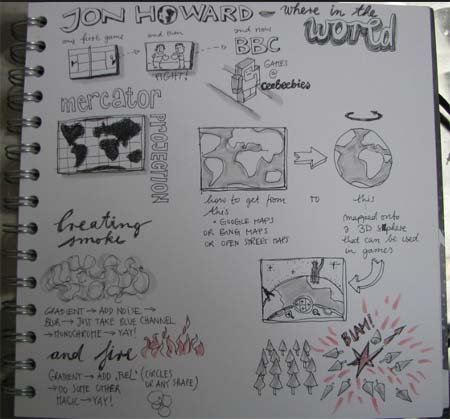 JON HOWARD – where in the
world
my first game
and then
FIGHT!
and now
BBC
GAMES
@
ceebeebies
mercator
PROJECTION
how to get from
this
• GOOGLE MAPS
OR BING MAPS
OR OPEN STREET MAPS
TO
this
mapped onto
a 3D sphere
that can be used
in games
Creating
smoke
GRADIENT → ADD NOISE →
BLUR → JUST TAKE BLUE CHANNEL
→ MONOCHROME → YAY!
and fire
GRADIENT → ADD „FUEL" (CIRCLES
OR ANY SHAPE)
→ DO SOME OTHER
MAGIC → YAY!
BLAM!